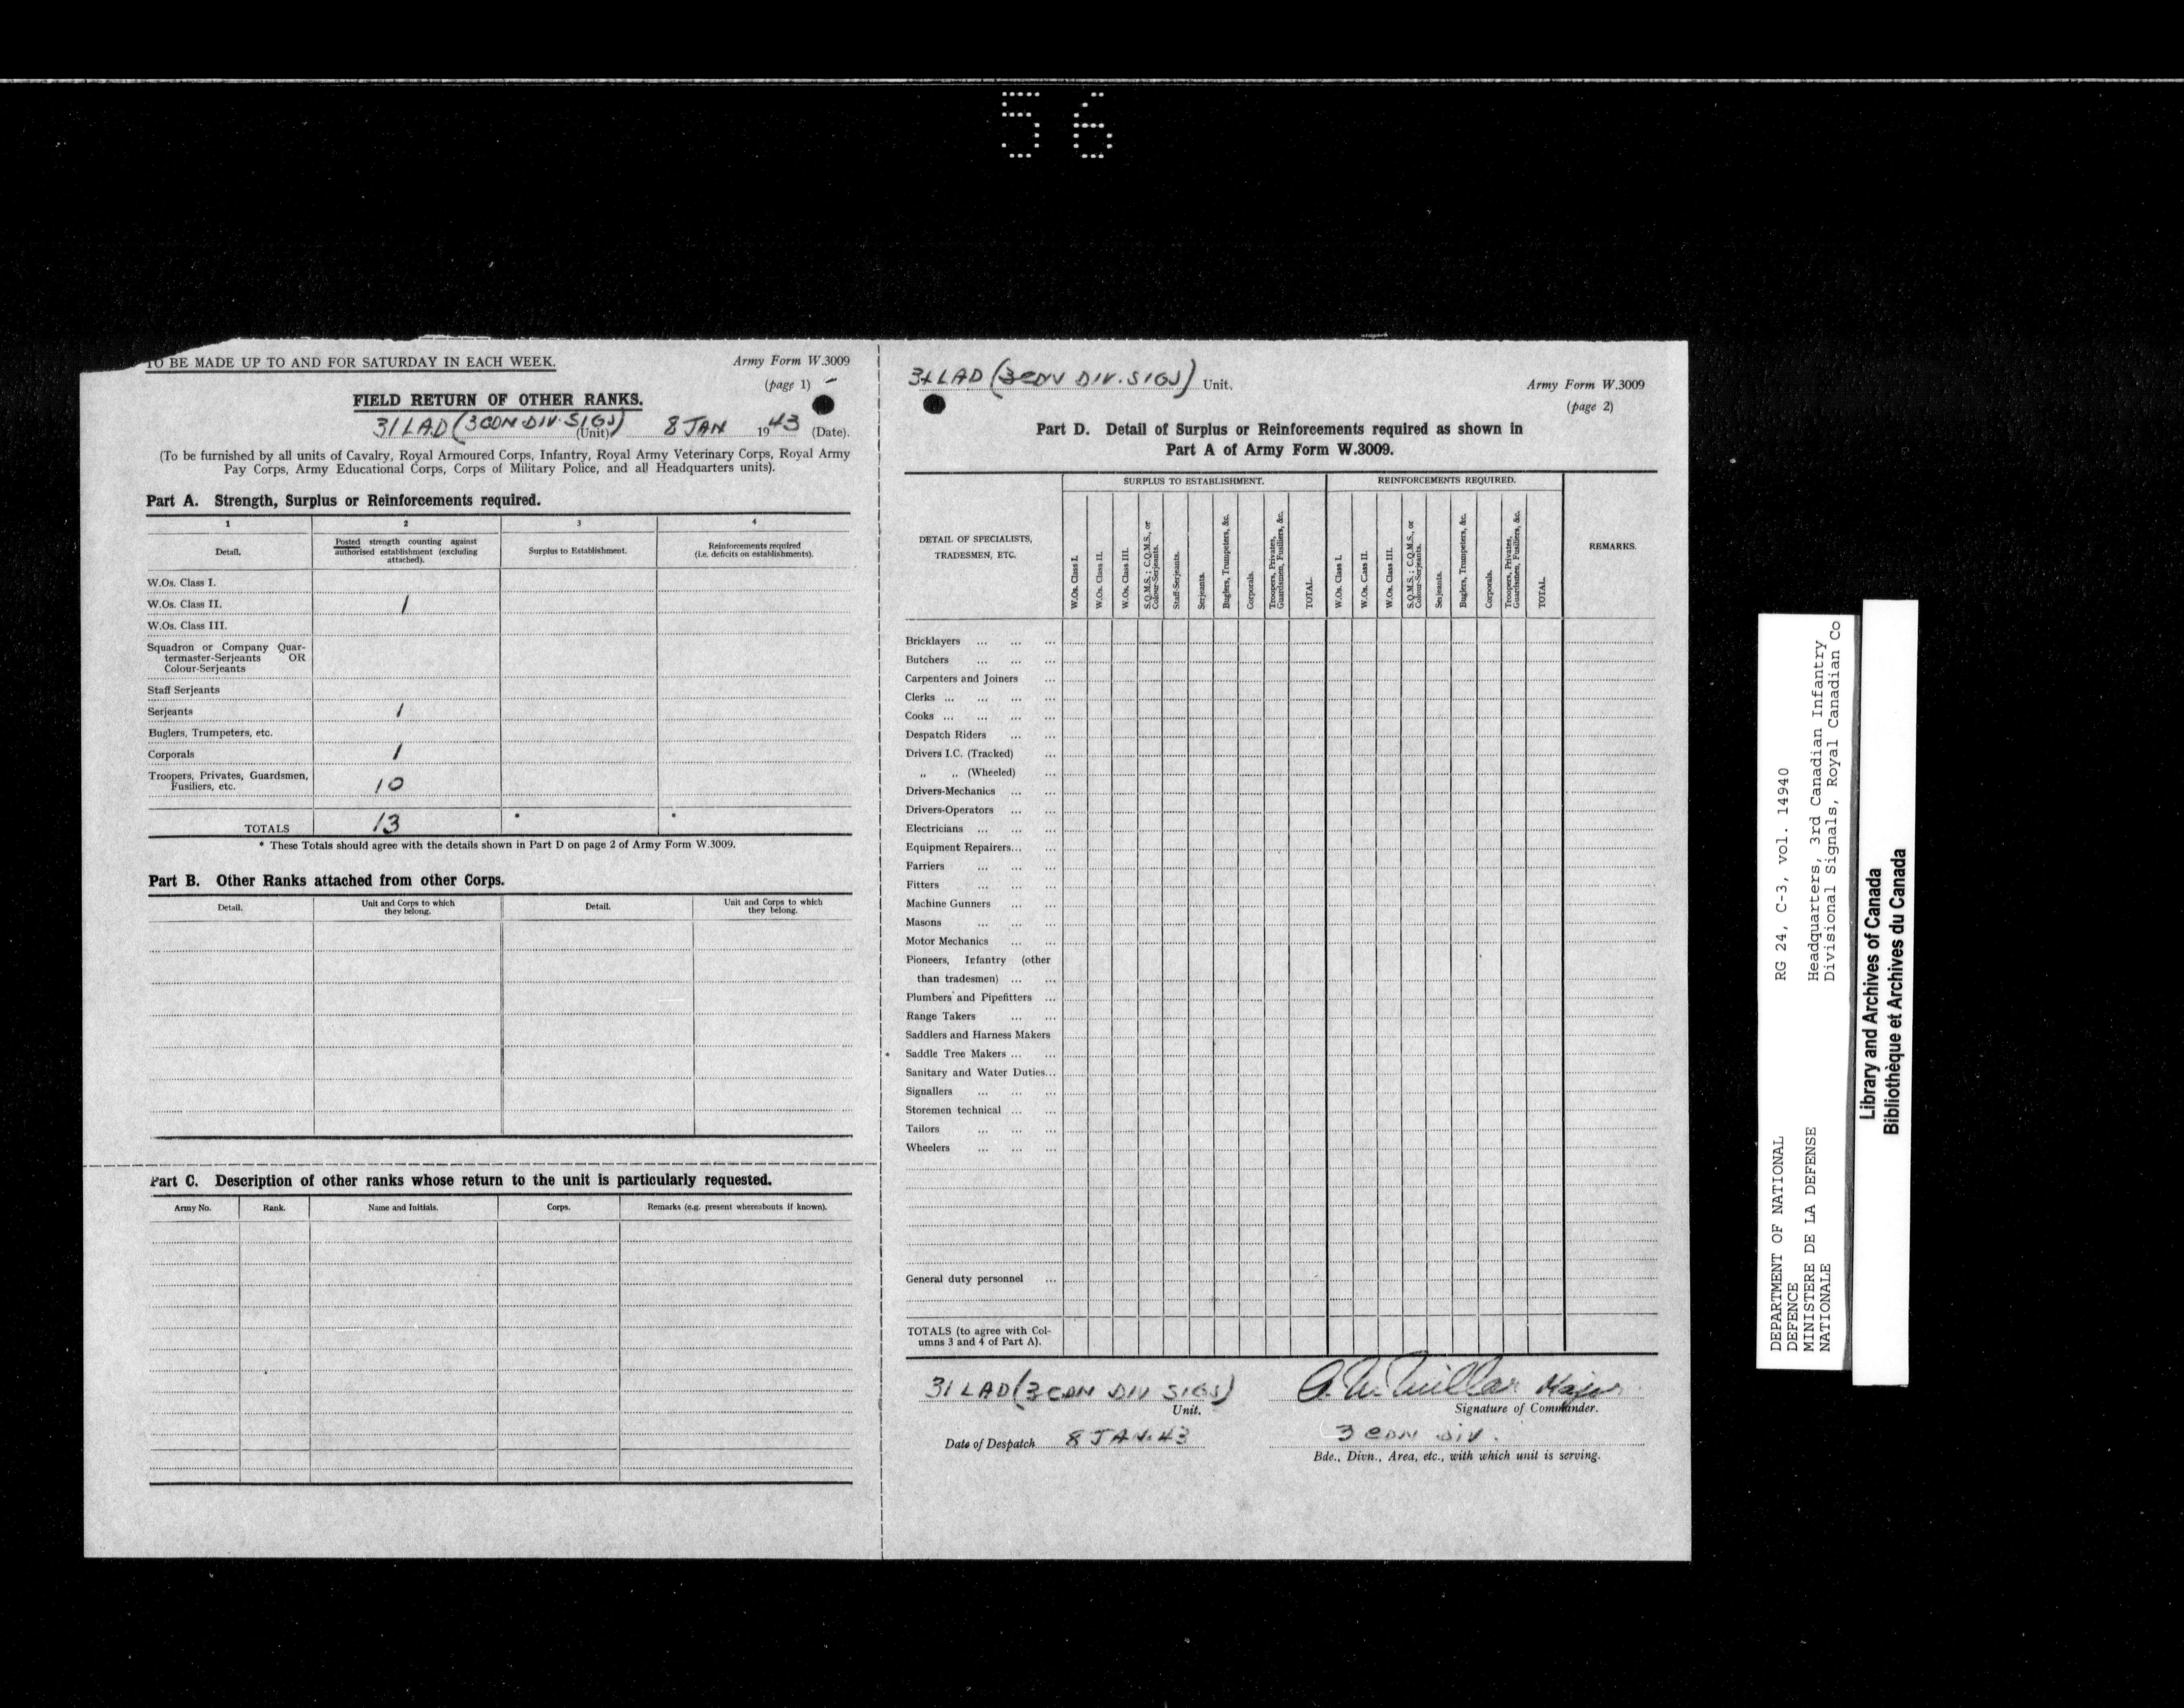 56
TO BE MADE UP TO AND FOR SATURDAY IN EACH WEEK.
Army Form W.3009
(page 1)
FIELD RETURN OF OTHER RANKS.
31 LAD (3 CDN DIV. SIGS) (Unit) 8 JAN 1943 (Date).
(To be furnished by all units of Cavalry, Royal Armoured Corps, Infantry, Royal Army Veterinary Corps, Royal Army
Pay Corps, Army Educational Corps, Corps of Military Police, and all Headquarters units).
Part A. Strength, Surplus or Reinforcements required.
1 2 3 4
Detail.
Posted strength counting against
authorised establishment (excluding
attached).
Surplus to Establishment.
Reinforcements required
(i.e. deficits on establishments).
W.Os. Class I.
W.Os. Class II. 1
W.Os. Class III.
Squadron or Company Quar-
termaster-Serjeants OR
Colour-Serjeants
Staff Serjeants
Serjeants 1
Buglers, Trumpeters, etc.
Corporals 1
Troopers, Privates, Guardsmen,
Fusiliers, etc. 10
TOTALS 13 * *
* These Totals should agree with the details shown in Part D on page 2 of Army Form W.3009.
Part B. Other Ranks attached from other Corps.
Detail.
Unit and Corps to which
they belong.
Detail.
Unit and Corps to which
they belong.
Part C. Description of other ranks whose return to the unit is particularly requested.
Army No. Rank. Name and Initials. Corps. Remarks (e.g. present whereabouts if known).
31 LAD (3 CDN DIV. SIGS) Unit.
Army Form W.3009
(page 2)
Part D. Detail of Surplus or Reinforcements required as shown in
Part A of Army Form W.3009.
DETAIL OF SPECIALISTS,
TRADESMEN, ETC.
SURPLUS TO ESTABLISHMENT.
W.Os. Class I.
W.Os. Class II.
W.Os. Class III.
S.Q.M.S.; C.Q.M.S., or
Colour-Serjeants.
Staff-Serjeants.
Serjeants.
Buglers, Trumpeters, &c.
Corporals.
Troopers, Privates,
Guardsmen, Fusiliers, &c.
TOTAL.
REINFORCEMENTS REQUIRED.
W.Os. Class I.
W.Os. Cass II.
W.Os. Class III.
S.Q.M.S.; C.Q.M.S., or
Colour-Serjeants.
Serjeants.
Buglers, Trumpeters, &c.
Corporals.
Troopers, Privates,
Guardsmen, Fusiliers, &c.
TOTAL.
REMARKS.
Bricklayers ... ... ...
Butchers ... ... ...
Carpenters and Joiners ...
Clerks ... ... ... ...
Cooks ... ... ... ...
Despatch Riders ... ...
Drivers I.C. (Tracked) ...
„ „ (Wheeled) ...
Drivers-Mechanics ... ...
Drivers-Operators ... ...
Electricians ... ... ...
Equipment Repairers... ...
Farriers ... ... ...
Fitters ... ... ...
Machine Gunners ... ...
Masons ... ... ...
Motor Mechanics ... ...
Pioneers, Infantry (other
than tradesmen) ... ...
Plumbers and Pipefitters ...
Range Takers ... ...
Saddlers and Harness Makers
Saddle Tree Makers ... ...
Sanitary and Water Duties...
Signallers ... ... ...
Storemen technical ... ...
Tailors ... ... ...
Wheelers ... ... ...
General duty personnel ...
TOTALS (to agree with Col-
umns 3 and 4 of Part A).
31 LAD (3 CDN DIV SIGS)
Unit.
Date of Despatch 8 JAN. 43
Millar Major
Signature of Commander.
3 CDN DIV.
Bde., Divn., Area, etc., with which unit is serving.
DEPARTMENT OF NATIONAL
DEFENCE
MINISTERE DE LA DEFENSE
NATIONALE
RG 24, C-3, vol. 14940
Headquarters, 3rd Canadian Infantry
Divisional Signals, Royal Canadian Co
Library and Archives of Canada
Bibliothèque et Archives du Canada